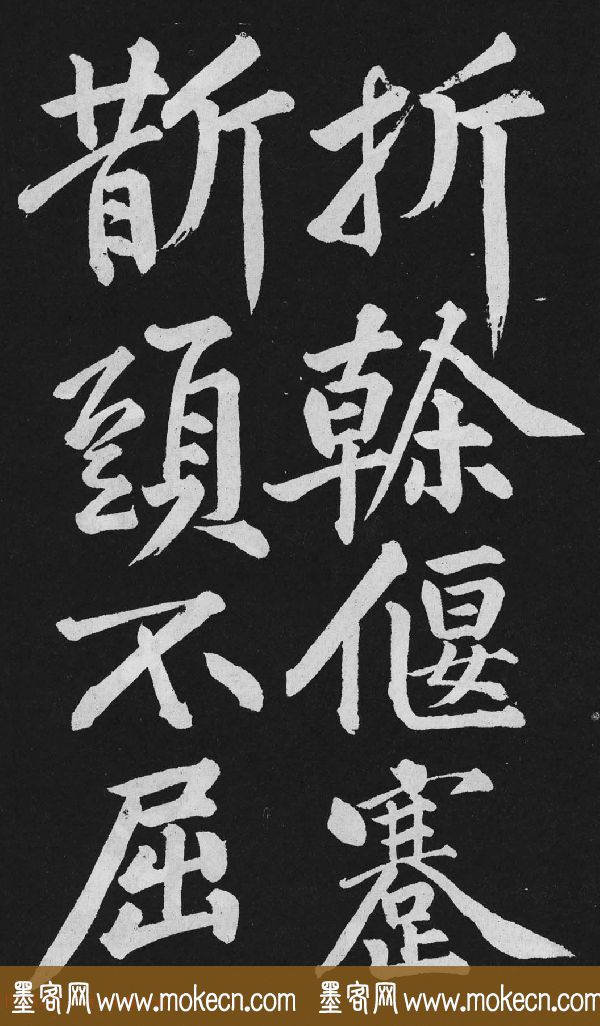 折榦偃蹇
斮頭不屈
墨客网 www.mokecn.com 墨客网 www.mokecn.com